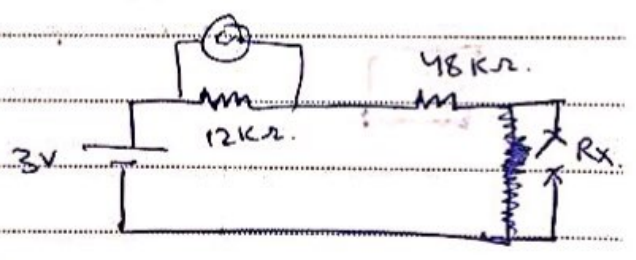 48 KΩ.
12KΩ.
3V
Rx.